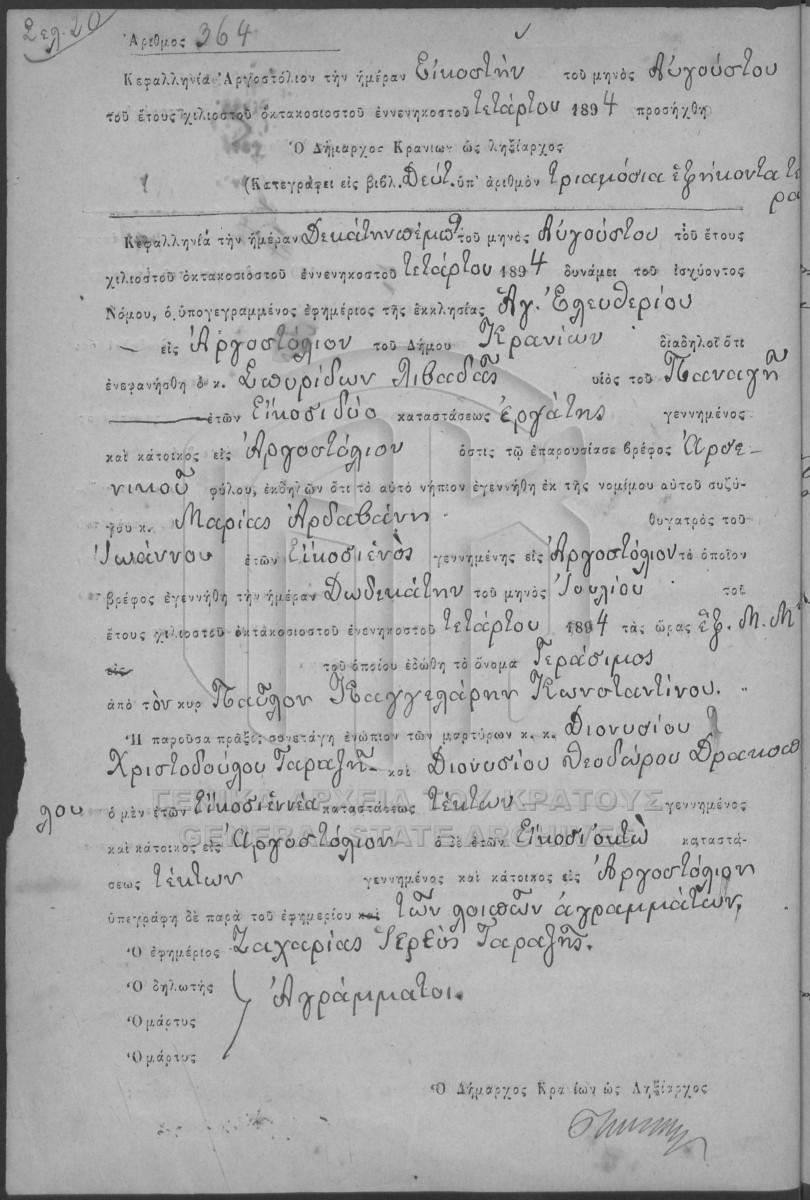 Σελ. 20
Ἀριθμος 364
Κεφαλληνία Ἀργοστόλιον τὴν ἡμέραν Εἰκοστὴν τοῦ μηνὸς Αὐγούστου
τοῦ ἔτους χιλιοστοῦ ὀκτακοσιοστοῦ ἐννενηκοστοῦ τετάρτου 1894 προσήχθη
Ὁ Δήμαρχος Κρανιων ὡς ληξίαρχος
(Κατεγράφει εἰς βιβλ. Δεύτ. ὑπ' ἀριθμὸν τριακόσια ἑξήκοντα τέ
ρα
Κεφαλληνία τὴν ἡμέραν Δεκάτην πέμπτ. τοῦ μηνὸς Αὐγούστου τοῦ ἔτους
χιλιοστοῦ ὀκτακοσιοστοῦ ἐννενηκοστοῦ τετάρτου 1894 δυνάμει τοῦ ἰσχύοντος
Νόμου, ὁ ὑπογεγραμμένος ἐφημέριος τῆς ἐκκλησίας Ἁγ. Ἐλευθερίου
εἰς Ἀργοστόλιον τοῦ Δήμου Κρανίων διαδηλοῖ ὅτι
ἐνεφανήσθη ὁ κ. Σπυρίδων Λιβαδᾶς υἱὸς τοῦ Παναγῆ
ἐτῶν Εἰκοσιδύο καταστάσεως ἐργάτης γεννημένος
καὶ κάτοικος εἰς Ἀργοστόλιον ὅστις τῷ ἐπαρουσίασε βρέφος Ἀρσε-
νικοῦ φύλου, ἐκδηλῶν ὅτι τὸ αὐτὸ νήπιον ἐγεννήθη ἐκ τῆς νομίμου αὐτοῦ συζύ-
γου κ. Μαρίας Ἀρδαβάνη θυγατρὸς τοῦ
Ἰωάννου ἐτῶν Εἰκοσιενὸς γεννημένης εἰς Ἀργοστόλιον τὸ ὁποῖον
βρέφος ἐγεννήθη τὴν ἡμέραν Δωδεκάτην τοῦ μηνὸς Ἰουλίου τοῦ
ἔτους χιλιοστοῦ ὀκτακοσιοστοῦ ἐνενηκοστοῦ τετάρτου 1894 τὰς ὥρας ἓξ. Μ. Μ
εἰς τοῦ ὁποίου ἐδώθη τὸ ὄνομα Γεράσιμος
ἀπὸ τὸν κυρ Παῦλον Καγγελάρην Κωνσταντίνου.
Ἡ παροῦσα πρᾶξις συνετάγη ἐνώπιον τῶν μαρτύρων κ. κ. Διονυσίου
Χριστοδούλου Ταραζῆ καὶ Διονυσίου Θεοδώρου Δρακοπ
λου
ὁ μὲν ἐτῶν Εἰκοσιεννέα καταστάσεως τέκτων γεννημένος
καὶ κάτοικος εἰς Ἀργοστόλιον ὁ δὲ ἐτῶν Εἰκοσιοκτὼ καταστά-
σεως τέκτων γεννημένος καὶ κάτοικος εἰς Ἀργοστόλιον
ὑπεγράφη δὲ παρὰ τοῦ ἐφημερίου καὶ τῶν λοιπῶν ἀγραμμάτων.
Ὁ ἐφημέριος Ζαχαρίας Ἱερεὺς Ταραζῆς.
Ὁ δηλωτής
Ἀγράμματοι.
Ὁ μάρτυς
Ὁ μάρτυς
Ὁ Δήμαρχος Κρανίων ὡς Ληξίαρχος
ΓΕΝΙΚΑ ΑΡΧΕΙΑ ΤΟΥ ΚΡΑΤΟΥΣ
GENERAL STATE ARCHIVES